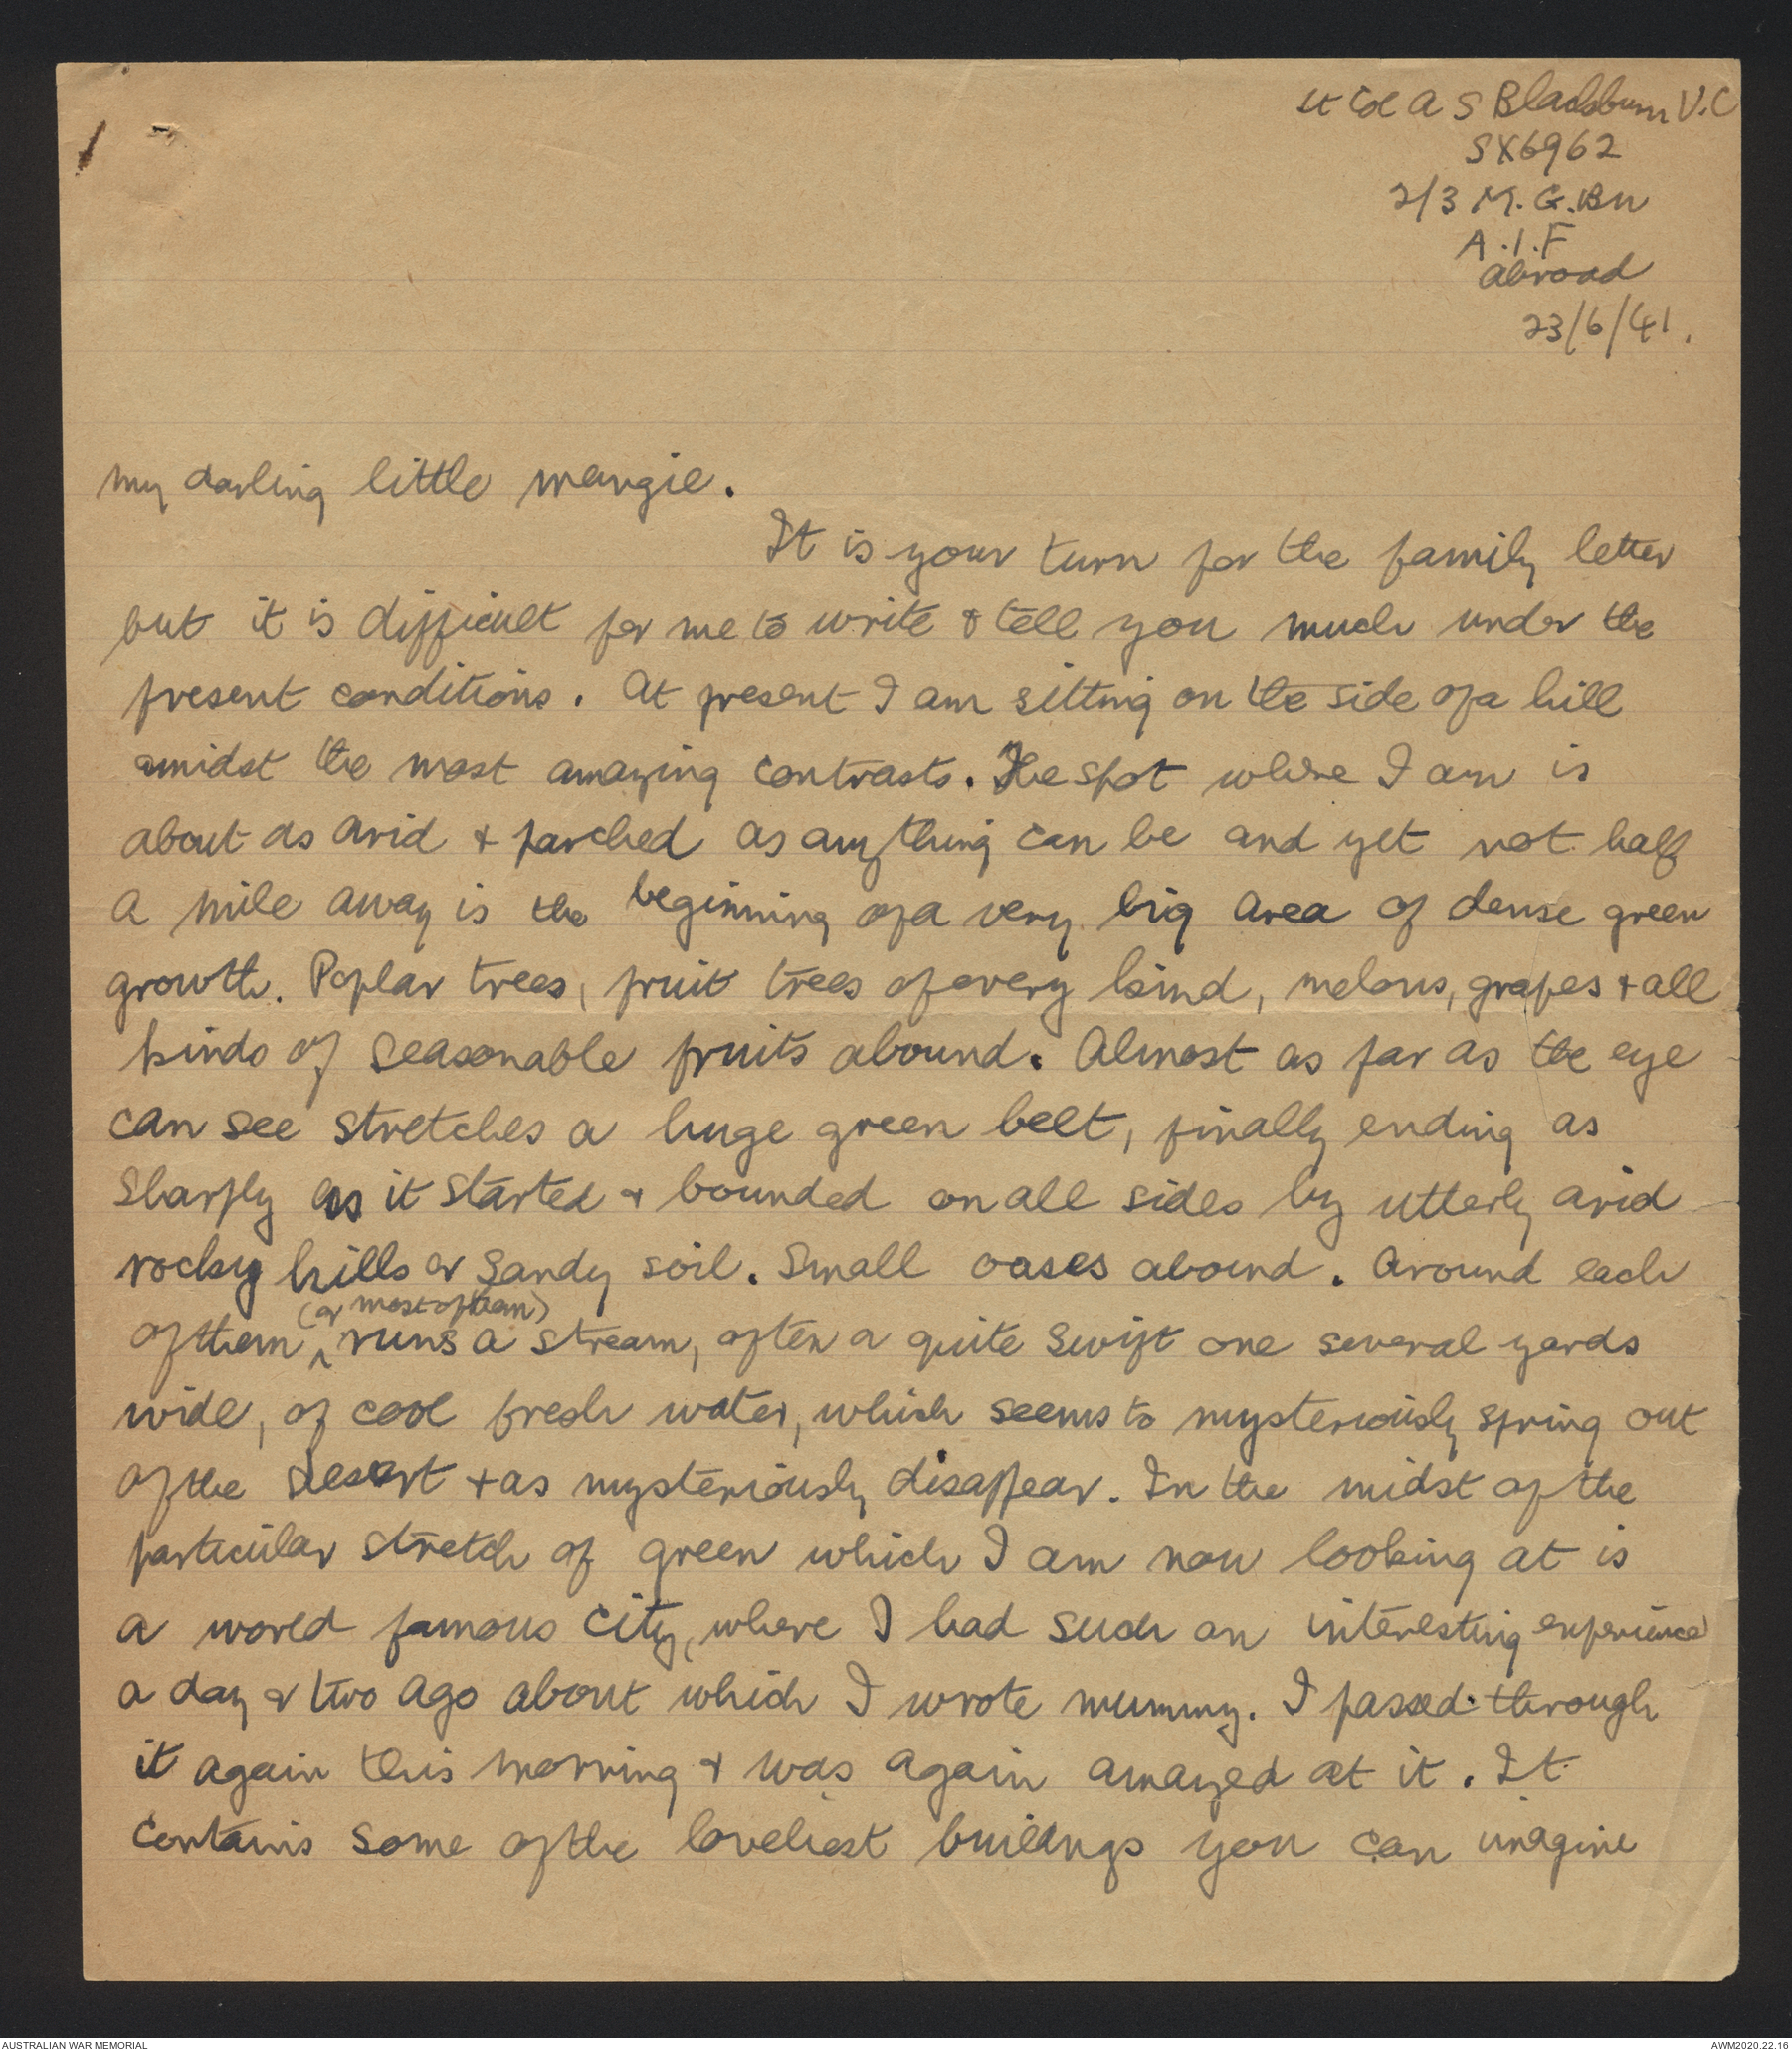 1
Lt Col A S Blackburn V.C
SX6962
2/3 M.G.Bn
A.I.F
abroad
23/6/41.
My darling little Margie.
It is your turn for the family letter
but it is difficult for me to write & tell you much under the
present conditions. At present I am sitting on the side of a hill
amidst the most amazing contrasts. The spot where I am is
about as arid & parched as anything can be and yet not half
a mile away is the beginning of a very big area of dense green
growth. Poplar trees, fruit trees of every kind, melons, grapes & all
kinds of seasonable fruits abound. Almost as far as the eye
can see stretches a huge green belt, finally ending as
sharply as it started & bounded on all sides by utterly arid
rocky hills or sandy soil. Small oases abound. Around each
(or most of them)
of them ^ runs a stream, often a quite swift one several yards
wide, of cool fresh water, which seems to mysteriously spring out
of the desert & as mysteriously disappear. In the midst of the
particular stretch of green which I am now looking at is
a world famous city, where I had such an interesting experience
a day or two ago about which I wrote mummy. I passed through
it again this morning & was again amazed at it. It
contains some of the loveliest buildings you can imagine
AUSTRALIAN WAR MEMORIAL
AWM2020.22.16